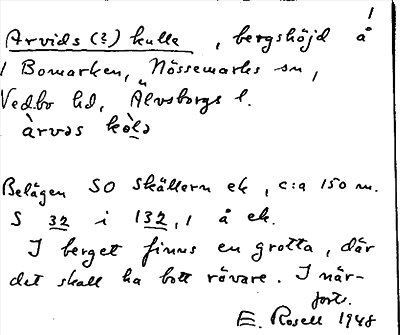 1
Arvids (?) kulle, bergshöjd å
1 Bomarken, Nössemarks sn,
Vedbo hd, Älvsborgs l.
àrvəs kòlə
Belägen SO Skällern ek, c:a 150 m.
S 32 i 132,1 å ek.
I berget finns en grotta, där
det skall ha bott rövare. I när-
fort.
E. Rosell 1948